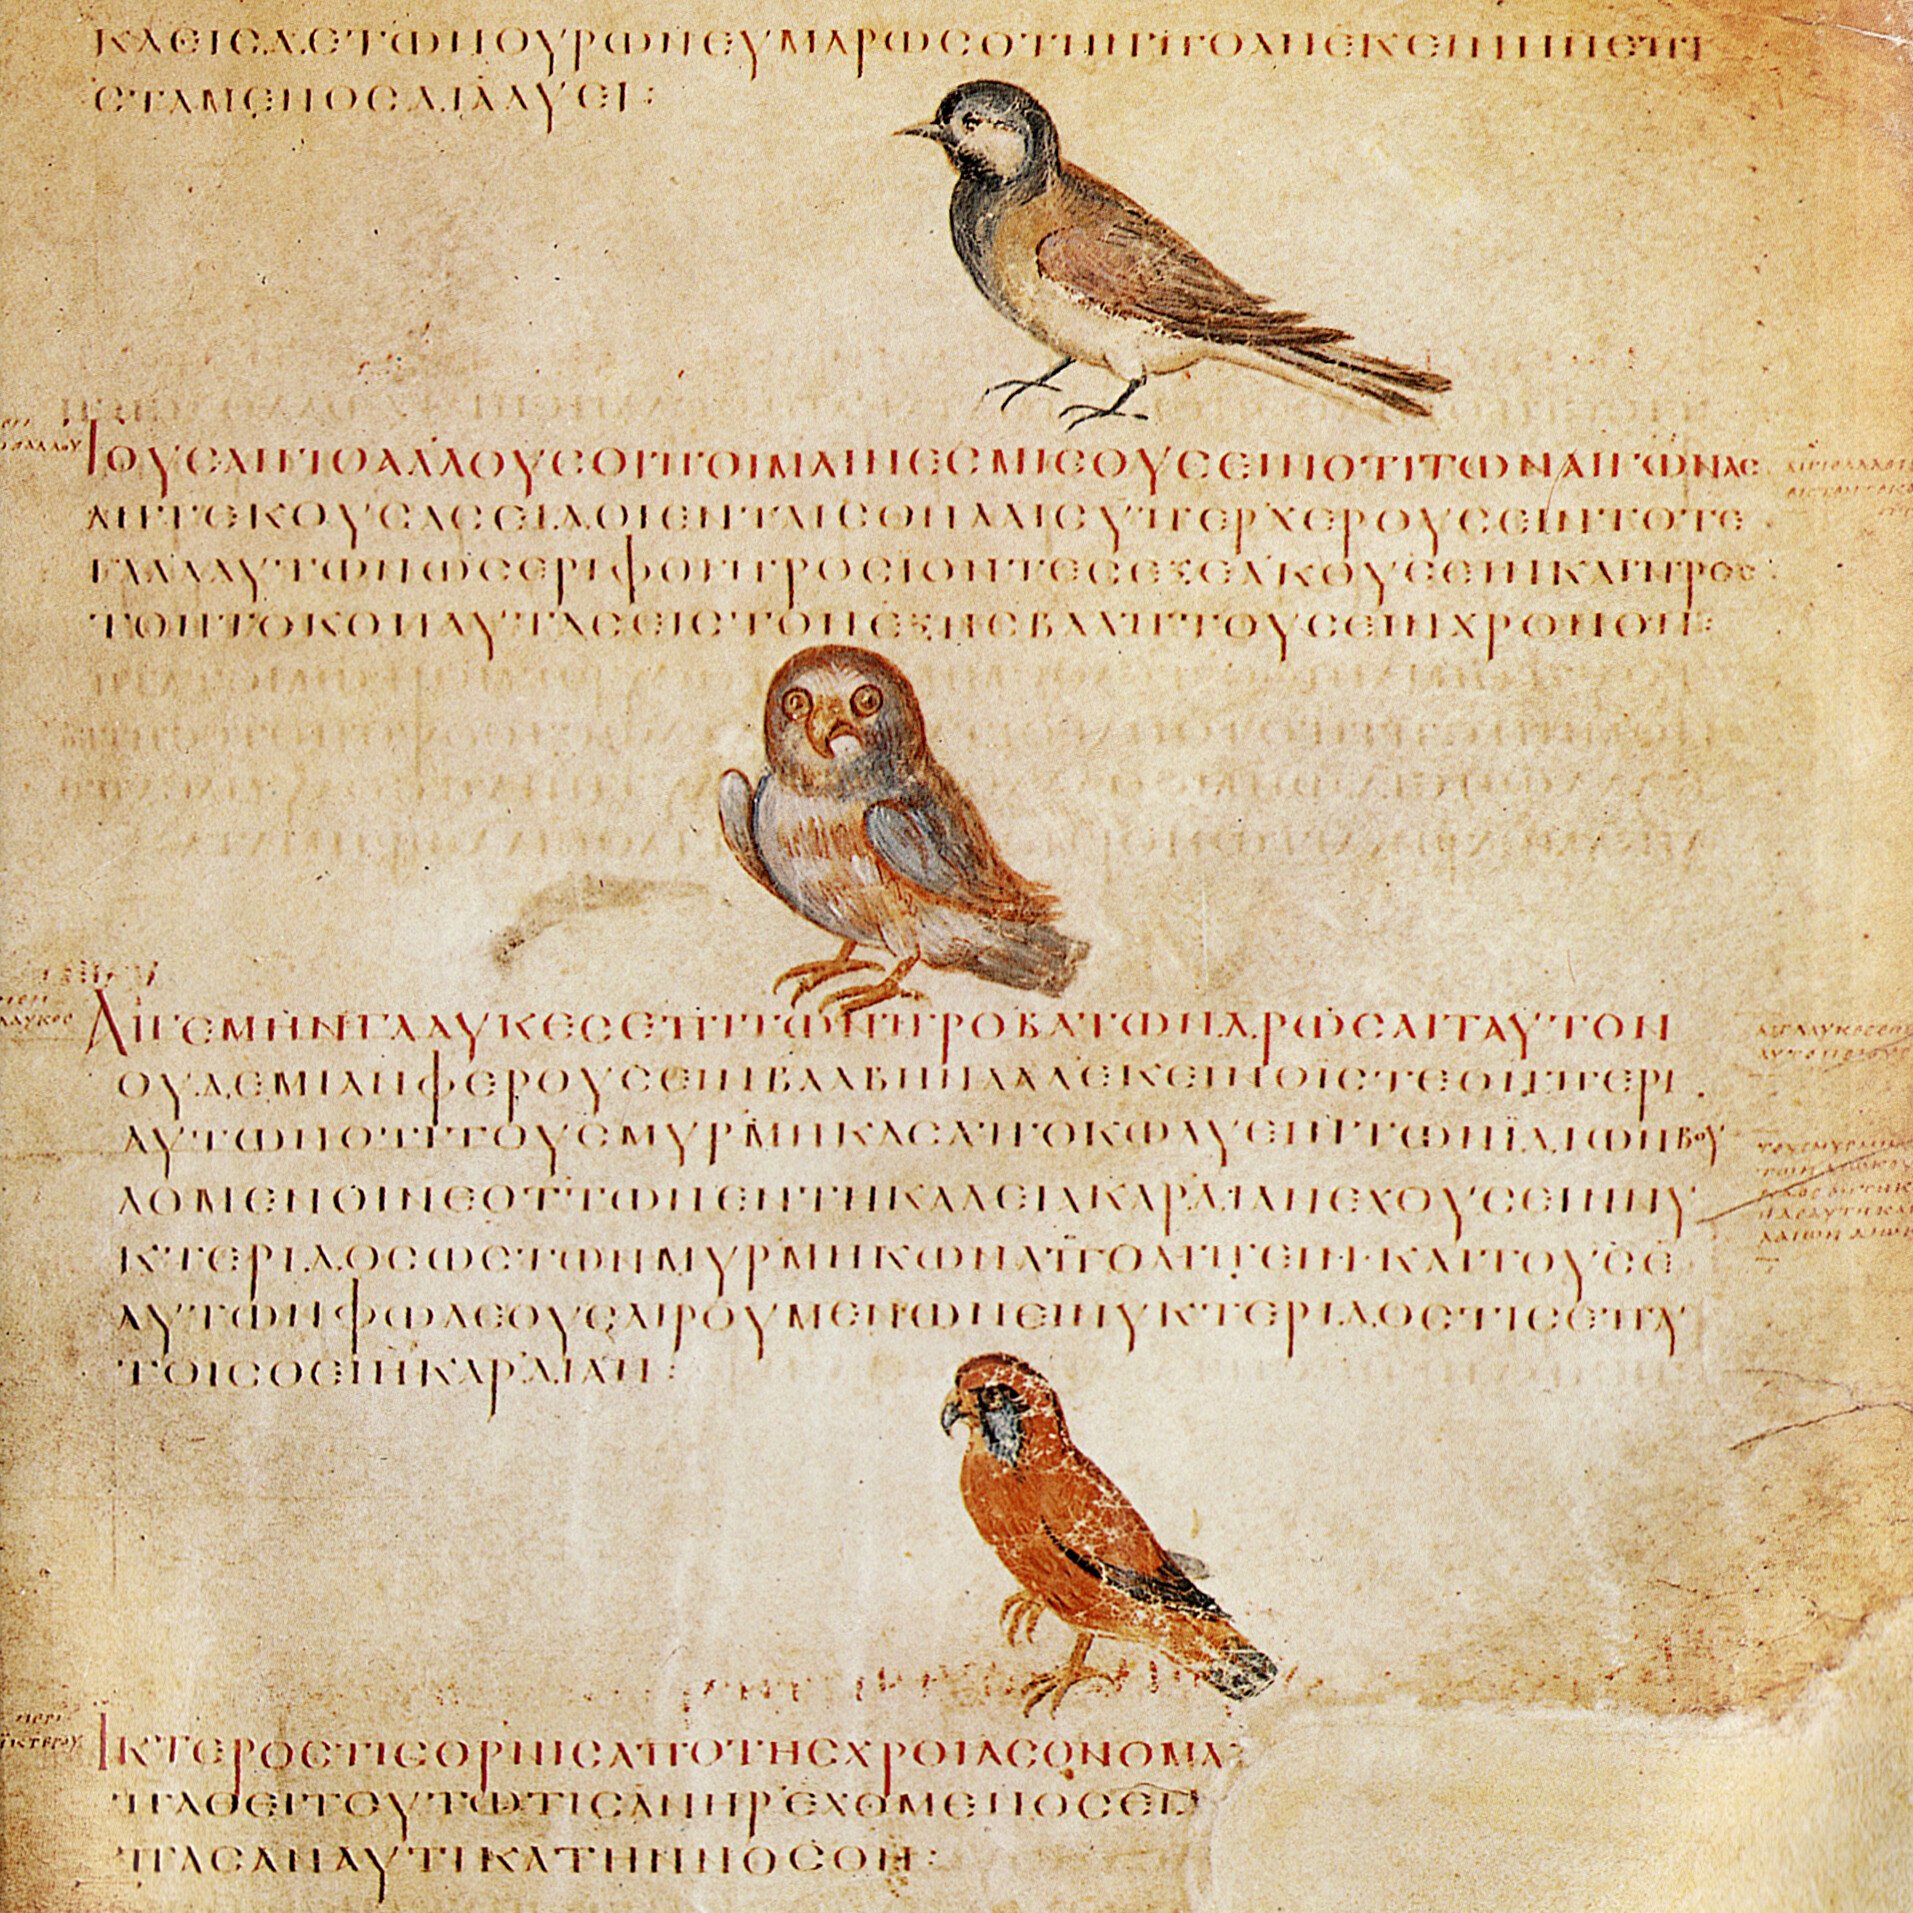 ΚΑΘΕΙϹΔΕΤΩΝΟΥΡΩΝΕΥΜΑΡΩϹΟΤΗΝΠΟΛΗΕΚΕΙΝΗΝΕΠΙ
ϹΤΑΜΕΝΟϹΔΙΑΛΥΕΙ:
ΤΟΥϹΑΙΓΟΘΑΛΛΟΥϹΟΙΠΟΙΜΑΙΝΕϹΜΙϹΟΥϹΕΙΝΟΤΙΤΩΝΑΙΓΩΝΑϹ
ΑΝΤΕΚΟΥϹΑϹΕΙΔΟΙΕΝΤΑΙϹΘΗΛΑΙϹΥΠΕΡΧΕΡΟΥϹΕΙΝΤΟΤΕ
ΓΑΛΑΑΥΤΩΝΩϹΕΡΙΦΟΙΠΡΟϹΙΟΝΤΕϹΕΞΕΛΚΟΥϹΕΙΝΚΑΙΠΡΟϹ
ΤΟΝΤΟΚΟΝΑΥΤΑϹΕΙϹΤΟΝΕΞΗϹΒΛΑΠΤΟΥϹΕΙΝΧΡΟΝΟΝ:
ΑΙΓΕΜΗΝΓΛΑΥΚΕϹΕΠΙΤΩΝΠΡΟΒΑΤΩΝΔΡΩϹΑΙΤΑΫΤΟΝ
ΟΥΔΕΜΙΑΝΦΕΡΟΥϹΕΙΝΒΛΑΒΗΝΑΛΛΕΚΕΙΝΟΪϹΤΕΟΝΠΕΡΙ
ΑΥΤΩΝΟΤΙΤΟΥϹΜΥΡΜΗΚΑϹΑΠΟΚΩΛΥΕΙΝΤΩΝΪΔΙΩΝΒΟΥ
ΛΟΜΕΝΟΙΝΕΟΤΤΩΝΕΝΤΗΚΑΛΕΙΑΚΑΡΔΙΑΝΕΧΟΥϹΕΙΝΝΥ
ΚΤΕΡΙΔΟϹΩϹΤΩΝΜΥΡΜΗΚΩΝΑΠΟΛΙΠΕΙΝΚΑΙΤΟΥϹΕ
ΑΥΤΩΝΦΩΛΕΟΥϹΑΙΡΟΥΜΕΝΩΝΕΙΝΥΚΤΕΡΙΔΟϹΤΙϹΕΠΑΥ
ΤΟΙϹΘΕΙΗΚΑΡΔΙΑΝ:
ΙΚΤΕΡΟϹΤΙϹΟΡΝΙϹΑΠΟΤΗϹΧΡΟΙΑϹΟΝΟΜΑ
ΠΑΘΕΙΤΟΥΤΩΤΙϹΑΝΗΡΕΧΟΜΕΝΟϹΕΙ
ΠΑϹΑΝΑΥΤΙΚΑΤΗΝΝΟϹΟΝ: